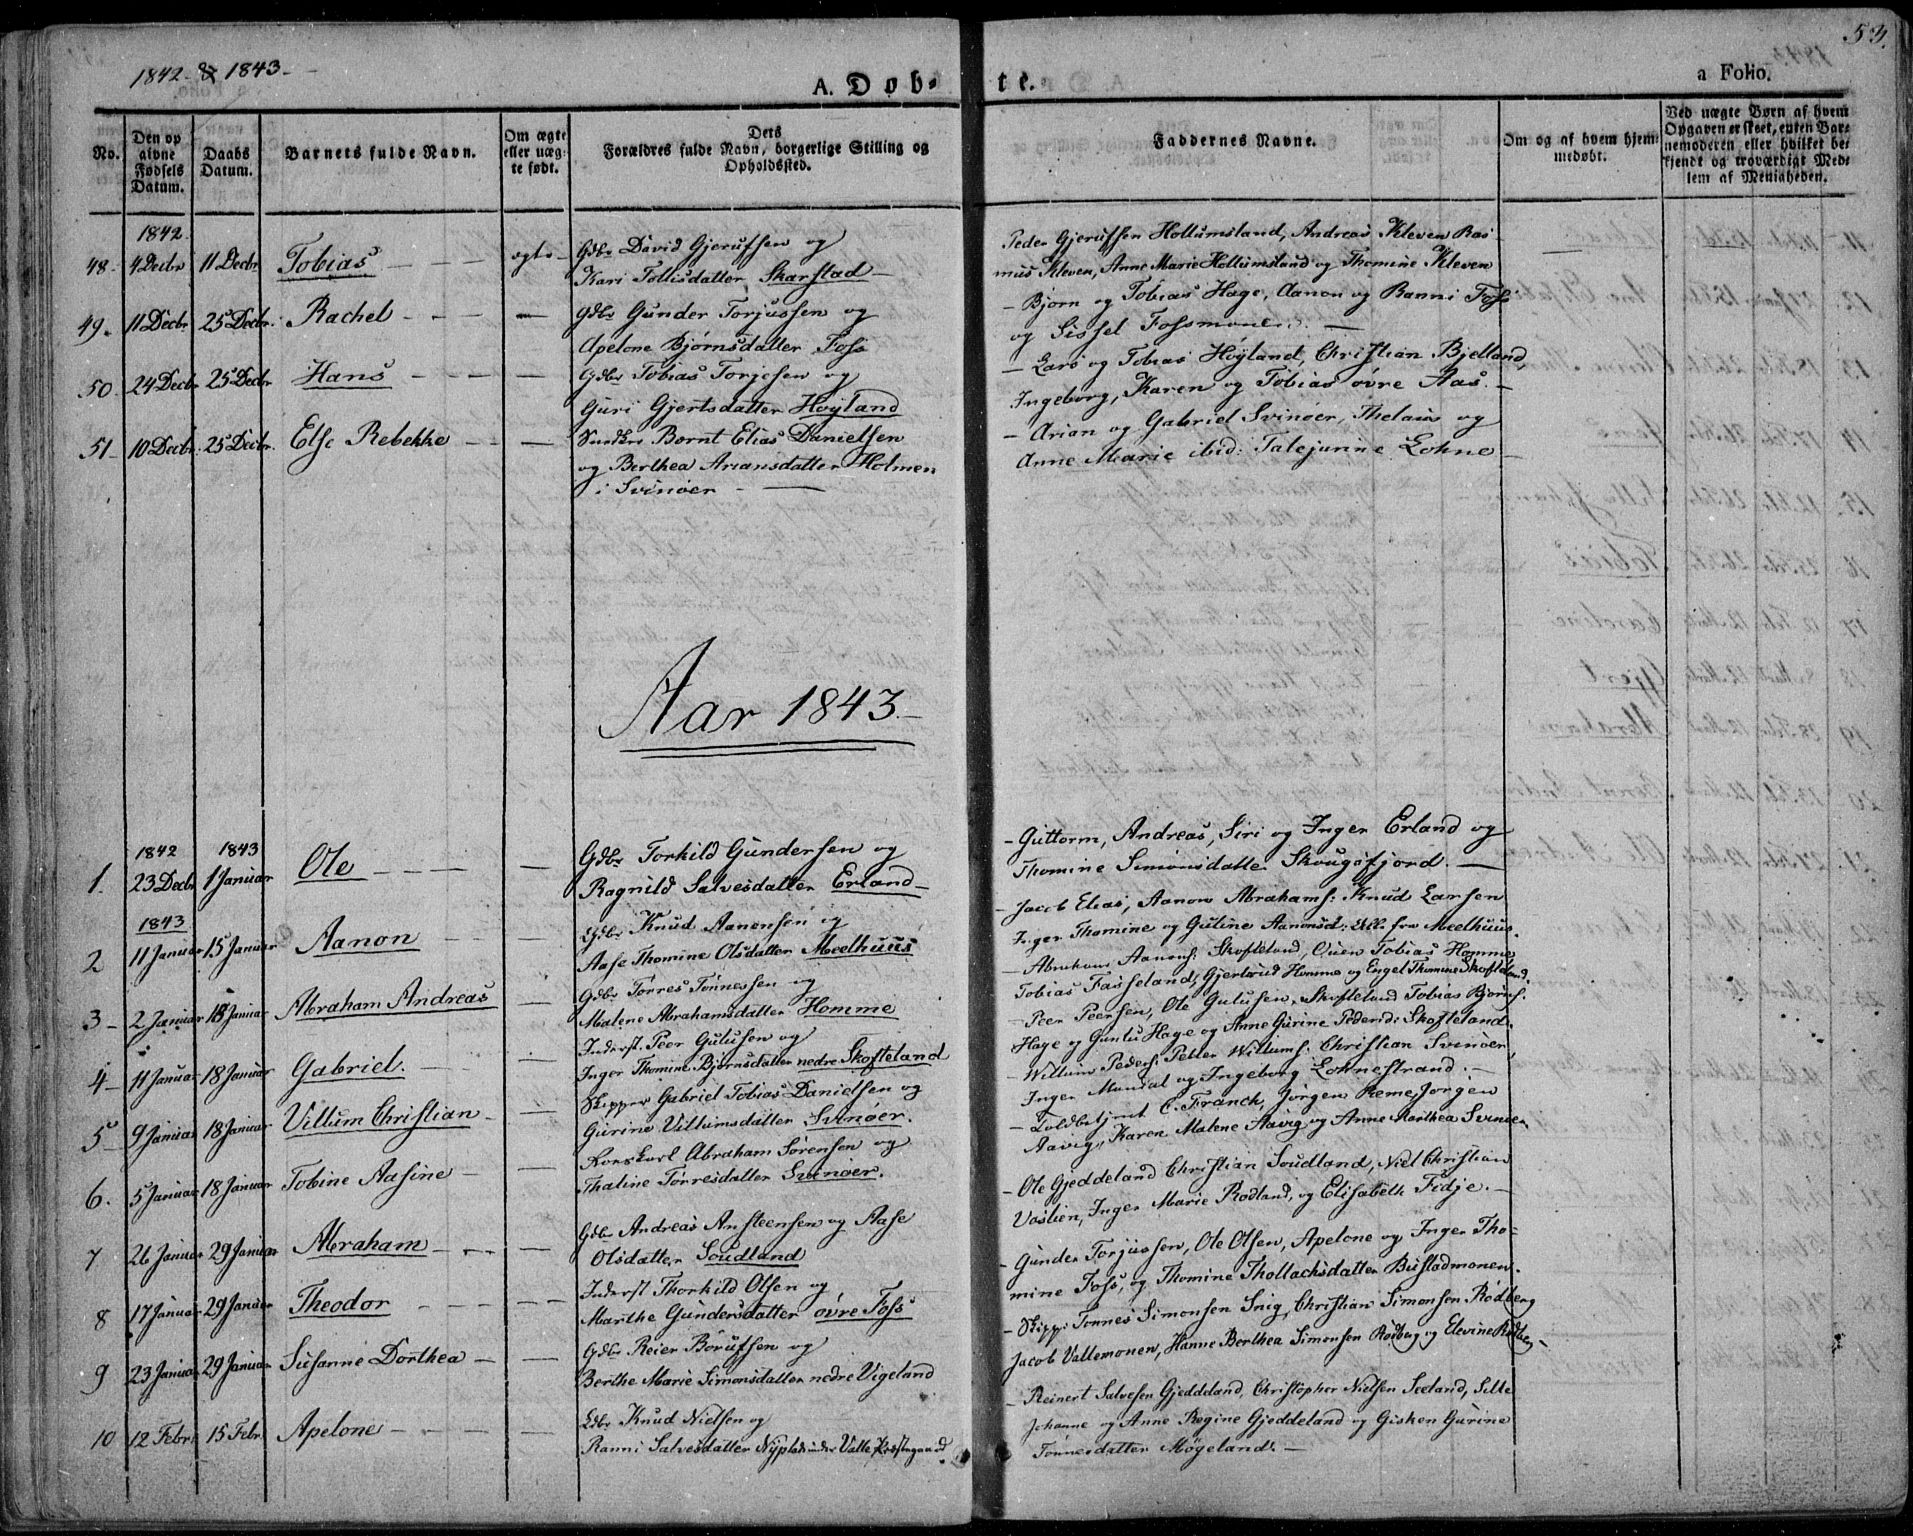 1842 & 1843.
53.
A. Døb-
te.
a Folio.
No.
Den op
givne
Fødsels
Datum.
Daabs
Datum.
Barnets fulde Navn.
Om ægte
eller uæg-
te født.
Dets
Forældres fulde Navn, borgerlige Stilling og
Opholdssted.
Faddernes Navne.
Om og af hvem hjem-
medøbt.
Ved uægte Børn af hvem
Opgaven er skeet, enten Bar-
nemoderen eller hvilket be-
kjendt og troværdigt Med-
lem af Menigheden.
1842
48. 4 Decbr 11 Decbr Tobias ægte Gdbr David Gjerufsen og
Kari Tollisdatter Skarstad
Peder Gjerufsen Hollumsland, Andreas Kleven Ras-
mus Kleven, Anne Marie Hollumsland og Thomine Kleven
49. 11 Decbr 25 Decbr. Rachel — Gdbr Gunder Torjussen og
Apelone Bjørnsdatter Foss
Bjørn og Tobias Hage, Aanon og Ranni Foss
og Sissel Fossmonen.
50. 24 Decbr 25 Decbr Hans — Gdbr Tobias Torjesen og
Guri Gjertsdatter Høyland
Lars og Tobias Høyland, Christian Bjelland
Ingeborg, Karen og Tobias øvre Aas.
51 10 Decbr. 25 Decbr. Else Rebekke — Snedker Bernt Elias Danielsen
og Berthea Ariansdatter Holmen
i Svinøer
Arian og Gabriel Svinøer, Thelaus og
Anne Marie ibid: Talejurine Lohne
Aar 1843.
1842 1843
1. 23 Decbr 1 Januar Ole — Gdbr Torkild Gundersen og
Ragnild Salvesdatter Erland
Guttorm, Andreas, Siri og Inger Erland og
Thomine Simonsdatter Skougsfjord.
1843
2 11 Januar 15 Januar Aanon — Gdbr Knud Aanensen og
Aase Thomine Olsdatter Meelhuus
Jacob Elias, Aanon Abrahams: Knud Larsen
Inger Thomine og Guline Aanonsd: alle fra Meelhuus.
3 2 Januar 18 Januar Abraham Andreas — Gdbr Torres Tønnessen og
Malene Abrahamsdatter Homme
Abraham Aanons: Skofteland, Ouen Tobias Homme
Tobias Fasseland, Gjertrud Homme og Engel Thomine Skofteland
4 11 Januar 18 Januar Gabriel. Inderst. Peer Gulusen og
Inger Thomine Bjørnsdatter nedre Skofteland
Peer Peersen, Ole Gulusen, Skofteland Tobias Bjørns:
Hage og Gunlu Hage og Anne Gurine Pedersd: Skofteland.
5 9 Januar 18 Januar Villum Christian — Skipper Gabriel Tobias Danielsen og
Gurine Villumsdatter Svinøer.
Willum Peders: Petter Willums: Christian Svinøer,
Inger Mandal og Ingeborg Lohnestrand.
6. 5 Januar 18 Januar Tobine Aasine — Abraham Sørensen og
Thaline Tørresdatter Svinøer.
Toldbetjent C. Franck, Jørgen Reme, Jørgen
Aavig, Karen Malene Aavig og Anne Marthea Svinøer
7 26 Januar 29 Januar Abraham — Gdbr Andreas Ansteensen og Aase
Olsdatter Soudland
Ole Gjeddeland Christian Soudland, Niel Christian
Vastien, Inger Marie Rødland, og Elisabeth Fidje.
8 17 Januar 29 Januar Theodor — Inderst Thorkild Olsen og
Marthe Gundersdatter øvre Foss
Gunder Torjussen, Ole Olsen, Apelone og Inger Tho-
mine Foss, og Thomine Thollachsdatter Bustadmonen.
9 23 Januar 29 Januar Susanne Dorthea — Gdbr Reier Børufsen og
Berthe Marie Simonsdatter nedre Vigeland
Skipp: Tønnes Simonsen Snig, Christian Simonsen Rødberg
Jacob Vallemonen, Hanne Berthea Simonsen Rødberg og Elevine Rødberg
10 12 Febr. 15 Febr. Apelone — Gdbr Knud Nielsen og
Ranni Salvesdatter Nyplads under Valle Præstegaard.
Reinert Salvesen Gjeddeland, Christopher Nielsen Seeland, Sille
Johanne og Anne Regine Gjeddeland og Gisken Gurine
Tønnesdatter Møgeland.